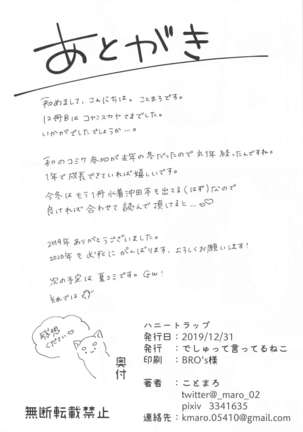 あとがき
初めまして、こんにちは。ことまろです。
12冊目はコヤンスカヤでまでした。
いかがでしたでしょうかー。
初のコミケ参加が去年の冬だったので丸1年経ったんですね。
1年で成長できていれば嬉しいです。
今冬はもう1冊水着沖田本も出てる(はず)なので
良ければ合わせて読んで頂けると…♡
2019年ありがとうございました。
2020年も必死にがんばります、よろしくお願いします!
次の予定は夏コミです。GW!
それでは
感想ください♡
奥付
ハニートラップ
発行日:2019/12/31
発行 :でしゅって言ってるねこ
印刷 :BRO's様
著者 :ことまろ
twitter@_maro_02
pixiv 3341635
連絡先:kmaro.05410@gmail.com
無断転載禁止